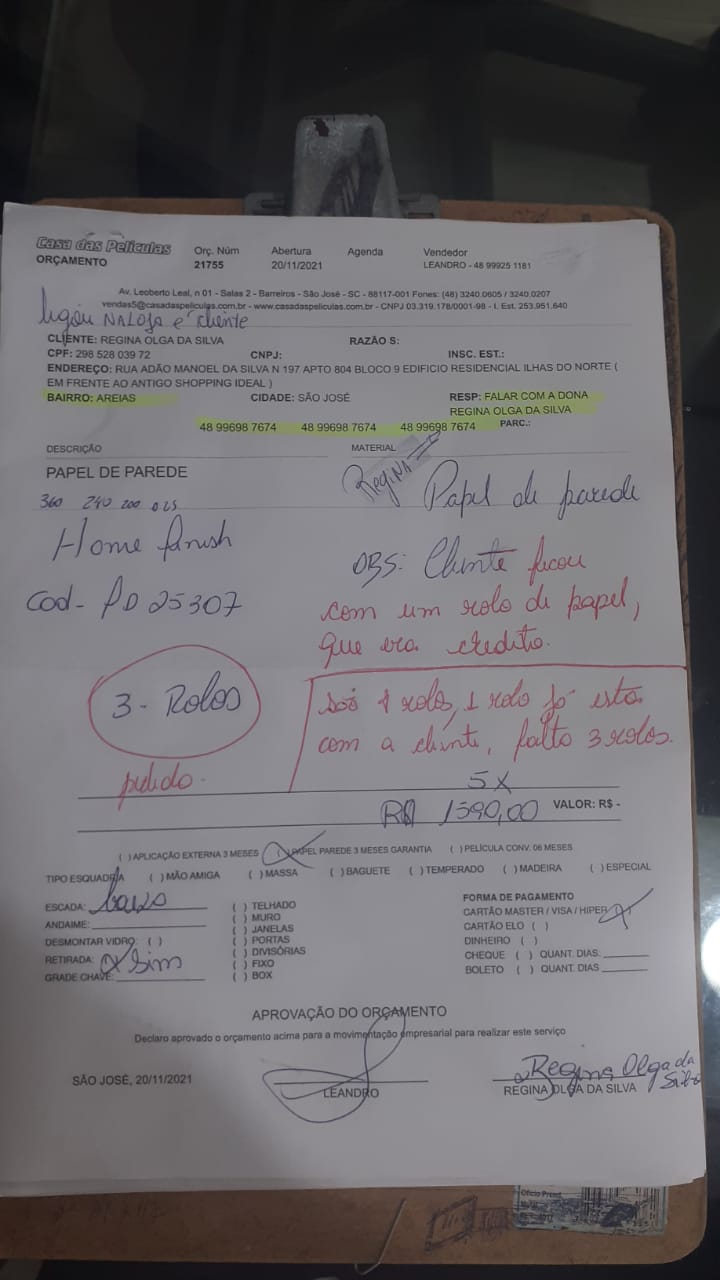 Casa das Películas
ORÇAMENTO
Orç. Núm Abertura Agenda Vendedor
21755 20/11/2021 LEANDRO - 48 99925 1181
Av. Leoberto Leal, n 01 - Salas 2 - Barreiros - São José - SC - 88117-001 Fones: (48) 3240.0605 / 3240.0207
vendas5@casadaspeliculas.com.br - www.casadaspeliculas.com.br - CNPJ 03.319.178/0001-98 - I. Est. 253.951.640
ligou NA LOJA e cliente
CLIENTE: REGINA OLGA DA SILVA RAZÃO S:
CPF: 298 528 039 72 CNPJ: INSC. EST.:
ENDEREÇO: RUA ADÃO MANOEL DA SILVA N 197 APTO 804 BLOCO 9 EDIFICIO RESIDENCIAL ILHAS DO NORTE (
EM FRENTE AO ANTIGO SHOPPING IDEAL )
BAIRRO: AREIAS CIDADE: SÃO JOSÉ RESP: FALAR COM A DONA
REGINA OLGA DA SILVA
48 99698 7674 48 99698 7674 48 99698 7674 PARC.:
DESCRIÇÃO MATERIAL
PAPEL DE PAREDE
Regina Papel de parede
360 240 200 025
Home finish
OBS: Cliente ficou
com um rolo de papel,
que era credito.
Cod - PD 25307
3 - Rolos
pedido.
são 4 rolos, 1 rolo já esta
com a cliente, falta 3 rolos.
5X
R$ 1590,00 VALOR: R$ -
( ) APLICAÇÃO EXTERNA 3 MESES (X) PAPEL PAREDE 3 MESES GARANTIA ( ) PELÍCULA CONV. 06 MESES
TIPO ESQUADRIA ( ) MÃO AMIGA ( ) MASSA ( ) BAGUETE ( ) TEMPERADO ( ) MADEIRA ( ) ESPECIAL
ESCADA: baixo
ANDAIME:
DESMONTAR VIDRO: ( )
RETIRADA: (X) Sim
GRADE CHAVE:
( ) TELHADO
( ) MURO
( ) JANELAS
( ) PORTAS
( ) DIVISÓRIAS
( ) FIXO
( ) BOX
FORMA DE PAGAMENTO
CARTÃO MASTER / VISA / HIPER (X)
CARTÃO ELO ( )
DINHEIRO ( )
CHEQUE ( ) QUANT. DIAS:
BOLETO ( ) QUANT. DIAS
APROVAÇÃO DO ORÇAMENTO
Declaro aprovado o orçamento acima para a movimentação empresarial para realizar este serviço
Regina Olga da
Silva
SÃO JOSÉ, 20/11/2021 LEANDRO REGINA OLGA DA SILVA